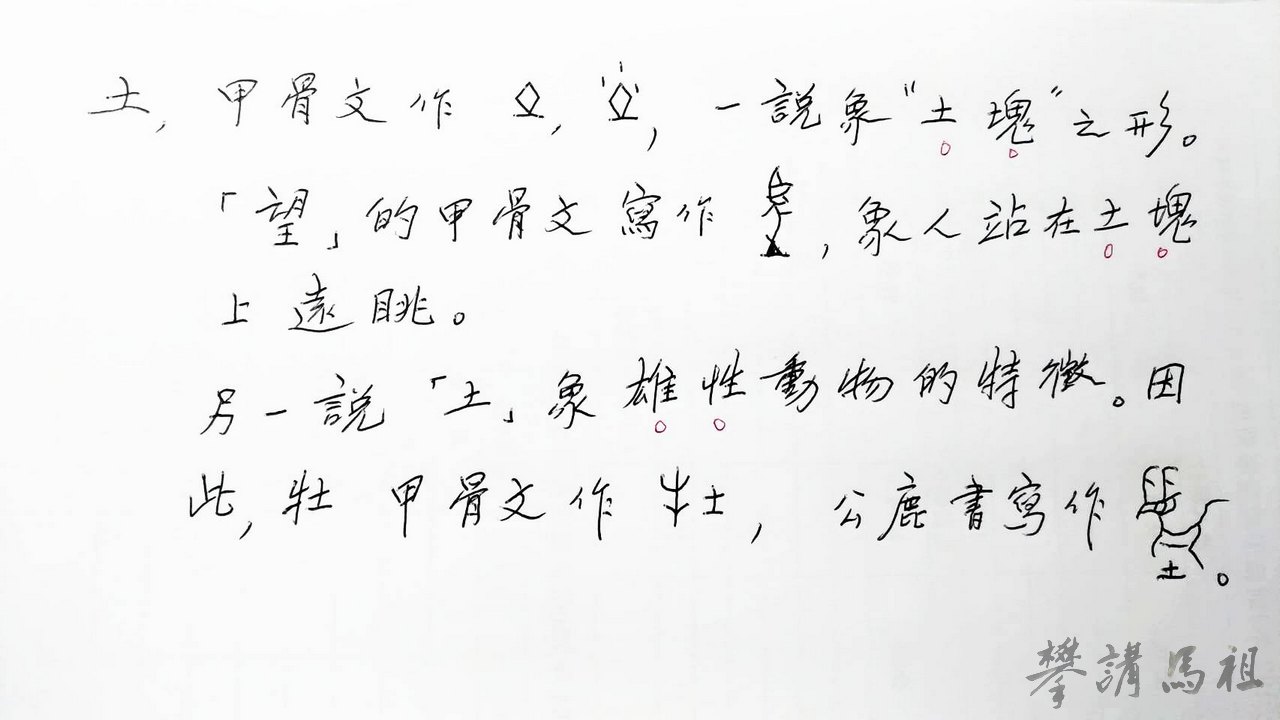 土, 甲骨文作 , , 一說象"土塊"之形。
「望」的甲骨文寫作 , 象人站在土塊
上遠眺。
另一說「土」象雄性動物的特徵。因
此, 牡 甲骨文作 , 公鹿書寫作 。
攀講馬祖